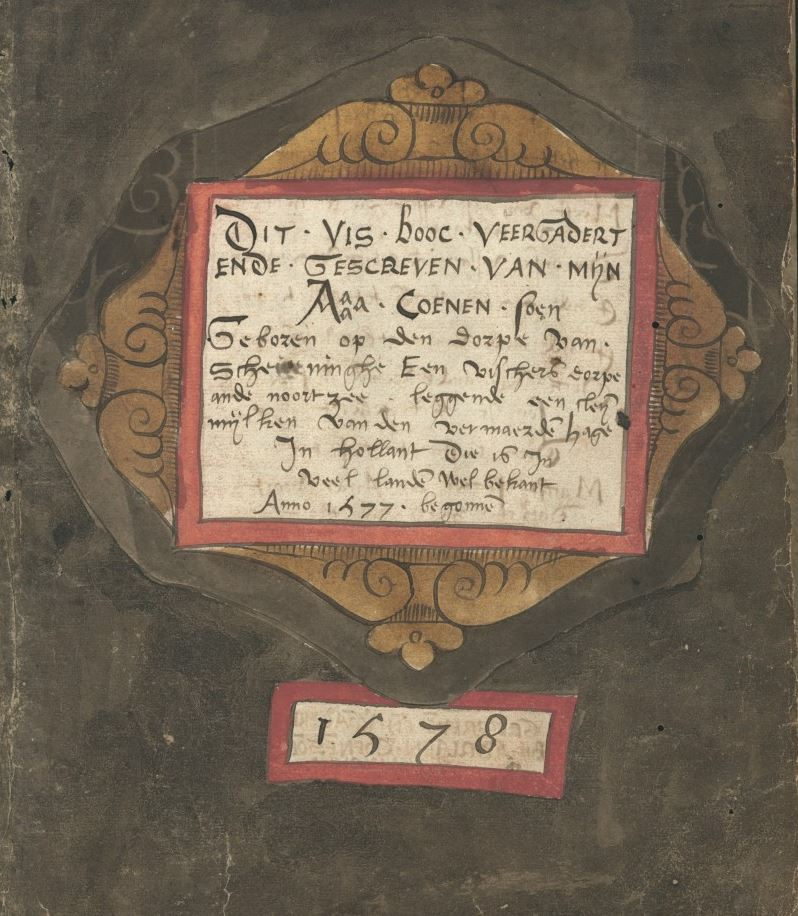 DIT · VIS · booc · VEERGADERT
ENDE · GESCREVEN · VAN · MIJN
Aaaa · COENEN · soen
Geboren op den dorpe van ·
Scheveninghe Een visschers dorpe
ande noort zee · leggende een cleÿ
mÿlken van den vermaerdē hage
In hollant Die is In
veel landē wel bekant
Anno 1577 · begonnē
1578